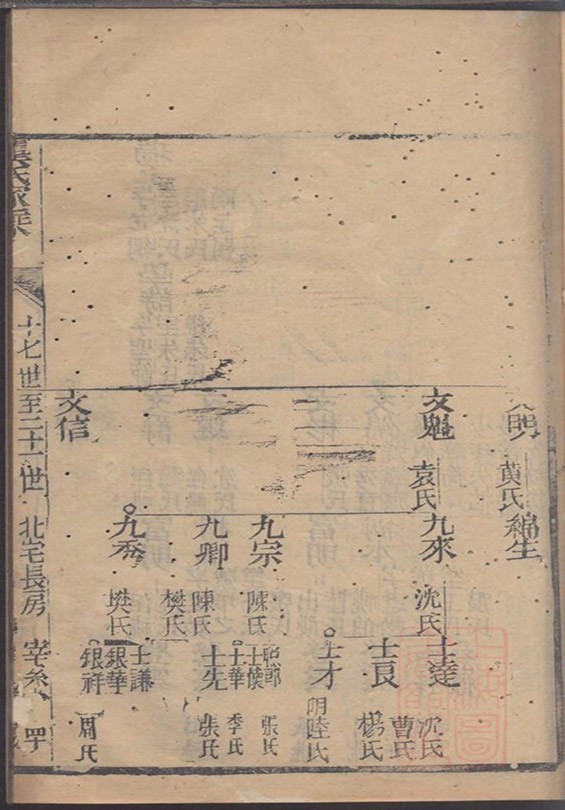 黃氏
綿生
文魁
袁氏
九來
沈氏
士達
沈氏
曹氏
士良
楊氏
士才
明
陸氏
九宗
陳氏
士俊
張氏
士華
季氏
九卿
陳氏
樊氏
士先
張氏
九秀
樊氏
士謙
銀華
銀祥
周氏
文信
十七世至二十一世
北宅長房